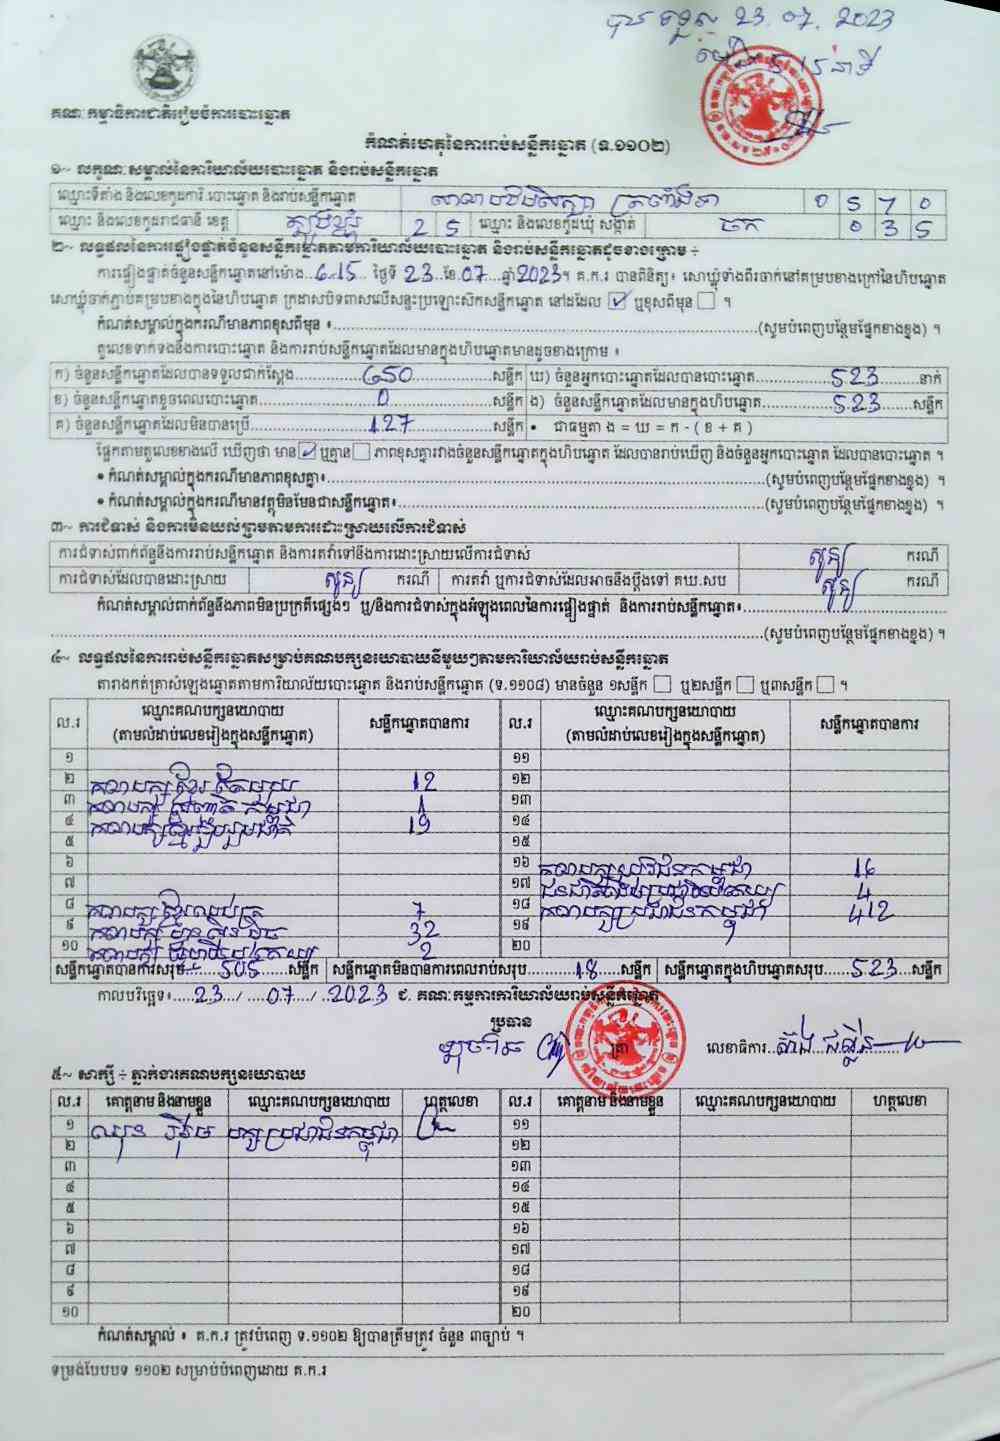 បានទទួល 23.07.2023
គណៈកម្មាធិការជាតិរៀបចំការបោះឆ្នោត
កំណត់ហេតុនៃការរាប់សន្លឹកឆ្នោត (ទ.១១០២)
១~ លក្ខណៈសម្គាល់នៃការិយាល័យបោះឆ្នោត និងរាប់សន្លឹកឆ្នោត
ឈ្មោះទីតាំង និងលេខកូដការិ.បោះឆ្នោត និងរាប់សន្លឹកឆ្នោត សាលាបឋមសិក្សា 0 5 7 0
ឈ្មោះ និងលេខកូដរាជធានី ខេត្ត ត្បូងឃ្មុំ 2 5 ឈ្មោះ និងលេខកូដឃុំ សង្កាត់ ចក 0 3 5
២~ លទ្ធផលនៃការផ្ទៀងផ្ទាត់ចំនួនសន្លឹកឆ្នោតតាមការិយាល័យបោះឆ្នោត និងរាប់សន្លឹកឆ្នោតដូចខាងក្រោម ÷
ការផ្ទៀងផ្ទាត់ចំនួនសន្លឹកឆ្នោតនៅម៉ោង 6:15 ថ្ងៃទី 23 ខែ 07 ឆ្នាំ 2023។ គ.ក.រ បានពិនិត្យ៖ សោឃ្លុំទាំងពីរចាក់នៅគម្របខាងក្រៅនៃហិបឆ្នោត
សោឃ្លុំចាក់ភ្ជាប់គម្របខាងក្នុងនៃហិបឆ្នោត ក្រដាសបិទពាសលើសន្ទះប្រឡោះស៊កសន្លឹកឆ្នោត នៅដដែល ☑ ឬខុសពីមុន ☐ ។
កំណត់សម្គាល់ក្នុងករណីមានភាពខុសពីមុន ៖ (សូមបំពេញបន្ថែមផ្នែកខាងខ្នង) ។
តួលេខទាក់ទងនឹងការបោះឆ្នោត និងការរាប់សន្លឹកឆ្នោតដែលមានក្នុងហិបឆ្នោតមានដូចខាងក្រោម ៖
ក) ចំនួនសន្លឹកឆ្នោតដែលបានទទួលជាក់ស្តែង 650 សន្លឹក ឃ) ចំនួនអ្នកបោះឆ្នោតដែលបានបោះឆ្នោត 523 នាក់
ខ) ចំនួនសន្លឹកឆ្នោតខូចពេលបោះឆ្នោត 0 សន្លឹក ង) ចំនួនសន្លឹកឆ្នោតដែលមានក្នុងហិបឆ្នោត 523 សន្លឹក
គ) ចំនួនសន្លឹកឆ្នោតដែលមិនបានប្រើ 127 សន្លឹក • ជាធម្មតា ង = ឃ = ក - ( ខ + គ )
ផ្អែកតាមតួលេខខាងលើ ឃើញថា មាន ☑ ឬគ្មាន ☐ ភាពខុសគ្នារវាងចំនួនសន្លឹកឆ្នោតក្នុងហិបឆ្នោត ដែលបានរាប់ឃើញ និងចំនួនអ្នកបោះឆ្នោត ដែលបានបោះឆ្នោត ។
• កំណត់សម្គាល់ក្នុងករណីមានភាពខុសគ្នា៖ (សូមបំពេញបន្ថែមផ្នែកខាងខ្នង) ។
• កំណត់សម្គាល់ក្នុងករណីមានវត្ថុមិនមែនជាសន្លឹកឆ្នោត៖ (សូមបំពេញបន្ថែមផ្នែកខាងខ្នង) ។
៣~ ការជំទាស់ និងការមិនយល់ព្រមតាមការដោះស្រាយលើការជំទាស់
ការជំទាស់ពាក់ព័ន្ធនឹងការរាប់សន្លឹកឆ្នោត និងការតវ៉ាទៅនឹងការដោះស្រាយលើការជំទាស់ សូន្យ ករណី
ការជំទាស់ដែលបានដោះស្រាយ សូន្យ ករណី ការតវ៉ា ឬការជំទាស់ដែលអាចនឹងប្តឹងទៅ គឃ.សប សូន្យ ករណី
កំណត់សម្គាល់ពាក់ព័ន្ធនឹងភាពមិនប្រក្រតីផ្សេងៗ ឬ/និងការជំទាស់ក្នុងអំឡុងពេលនៃការផ្ទៀងផ្ទាត់ និងការរាប់សន្លឹកឆ្នោត៖
(សូមបំពេញបន្ថែមផ្នែកខាងខ្នង) ។
៤~ លទ្ធផលនៃការរាប់សន្លឹកឆ្នោតសម្រាប់គណបក្សនយោបាយនីមួយៗតាមការិយាល័យរាប់សន្លឹកឆ្នោត
តារាងកត់ត្រាសំឡេងឆ្នោតតាមការិយាល័យបោះឆ្នោត និងរាប់សន្លឹកឆ្នោត (ទ.១១០៨) មានចំនួន ១សន្លឹក ☐ ឬ២សន្លឹក ☐ ឬ៣សន្លឹក ☐ ។
ល.រ ឈ្មោះគណបក្សនយោបាយ (តាមលំដាប់លេខរៀងក្នុងសន្លឹកឆ្នោត) សន្លឹកឆ្នោតបានការ ល.រ ឈ្មោះគណបក្សនយោបាយ (តាមលំដាប់លេខរៀងក្នុងសន្លឹកឆ្នោត) សន្លឹកឆ្នោតបានការ
១ ១១
២ គណបក្សខ្មែរតែមួយ 12 ១២
៣ គណបក្ស កម្ពុជា 1 ១៣
៤ គណបក្សខ្មែររួបរួមជាតិ 19 ១៤
៥ ១៥
៦ ១៦ គណបក្សយុវជនកម្ពុជា 16
៧ ១៧ 4
៨ គណបក្សខ្មែរឈប់ក្រ 7 ១៨ គណបក្សប្រជាជនកម្ពុជា 412
៩ គណបក្សហ្វ៊ុនស៊ិនប៉ិច 32 ១៩
១០ គណបក្ស 2 ២០
សន្លឹកឆ្នោតបានការសរុប 505 សន្លឹក សន្លឹកឆ្នោតមិនបានការពេលរាប់សរុប 18 សន្លឹក សន្លឹកឆ្នោតក្នុងហិបឆ្នោតសរុប 523 សន្លឹក
កាលបរិច្ឆេទ៖ 23 / 07 / 2023 ជ. គណៈកម្មការការិយាល័យរាប់សន្លឹកឆ្នោត
ប្រធាន
ត្រា លេខាធិការ
៥~ សាក្សី ÷ ភ្នាក់ងារគណបក្សនយោបាយ
ល.រ គោត្តនាម និងនាមខ្លួន ឈ្មោះគណបក្សនយោបាយ ហត្ថលេខា ល.រ គោត្តនាម និងនាមខ្លួន ឈ្មោះគណបក្សនយោបាយ ហត្ថលេខា
១ បក្សប្រជាជនកម្ពុជា ១១
២ ១២
៣ ១៣
៤ ១៤
៥ ១៥
៦ ១៦
៧ ១៧
៨ ១៨
៩ ១៩
១០ ២០
កំណត់សម្គាល់ ៖ គ.ក.រ ត្រូវបំពេញ ទ.១១០២ ឱ្យបានត្រឹមត្រូវ ចំនួន ៣ច្បាប់ ។
ទម្រង់បែបបទ ១១០២ សម្រាប់បំពេញដោយ គ.ក.រ